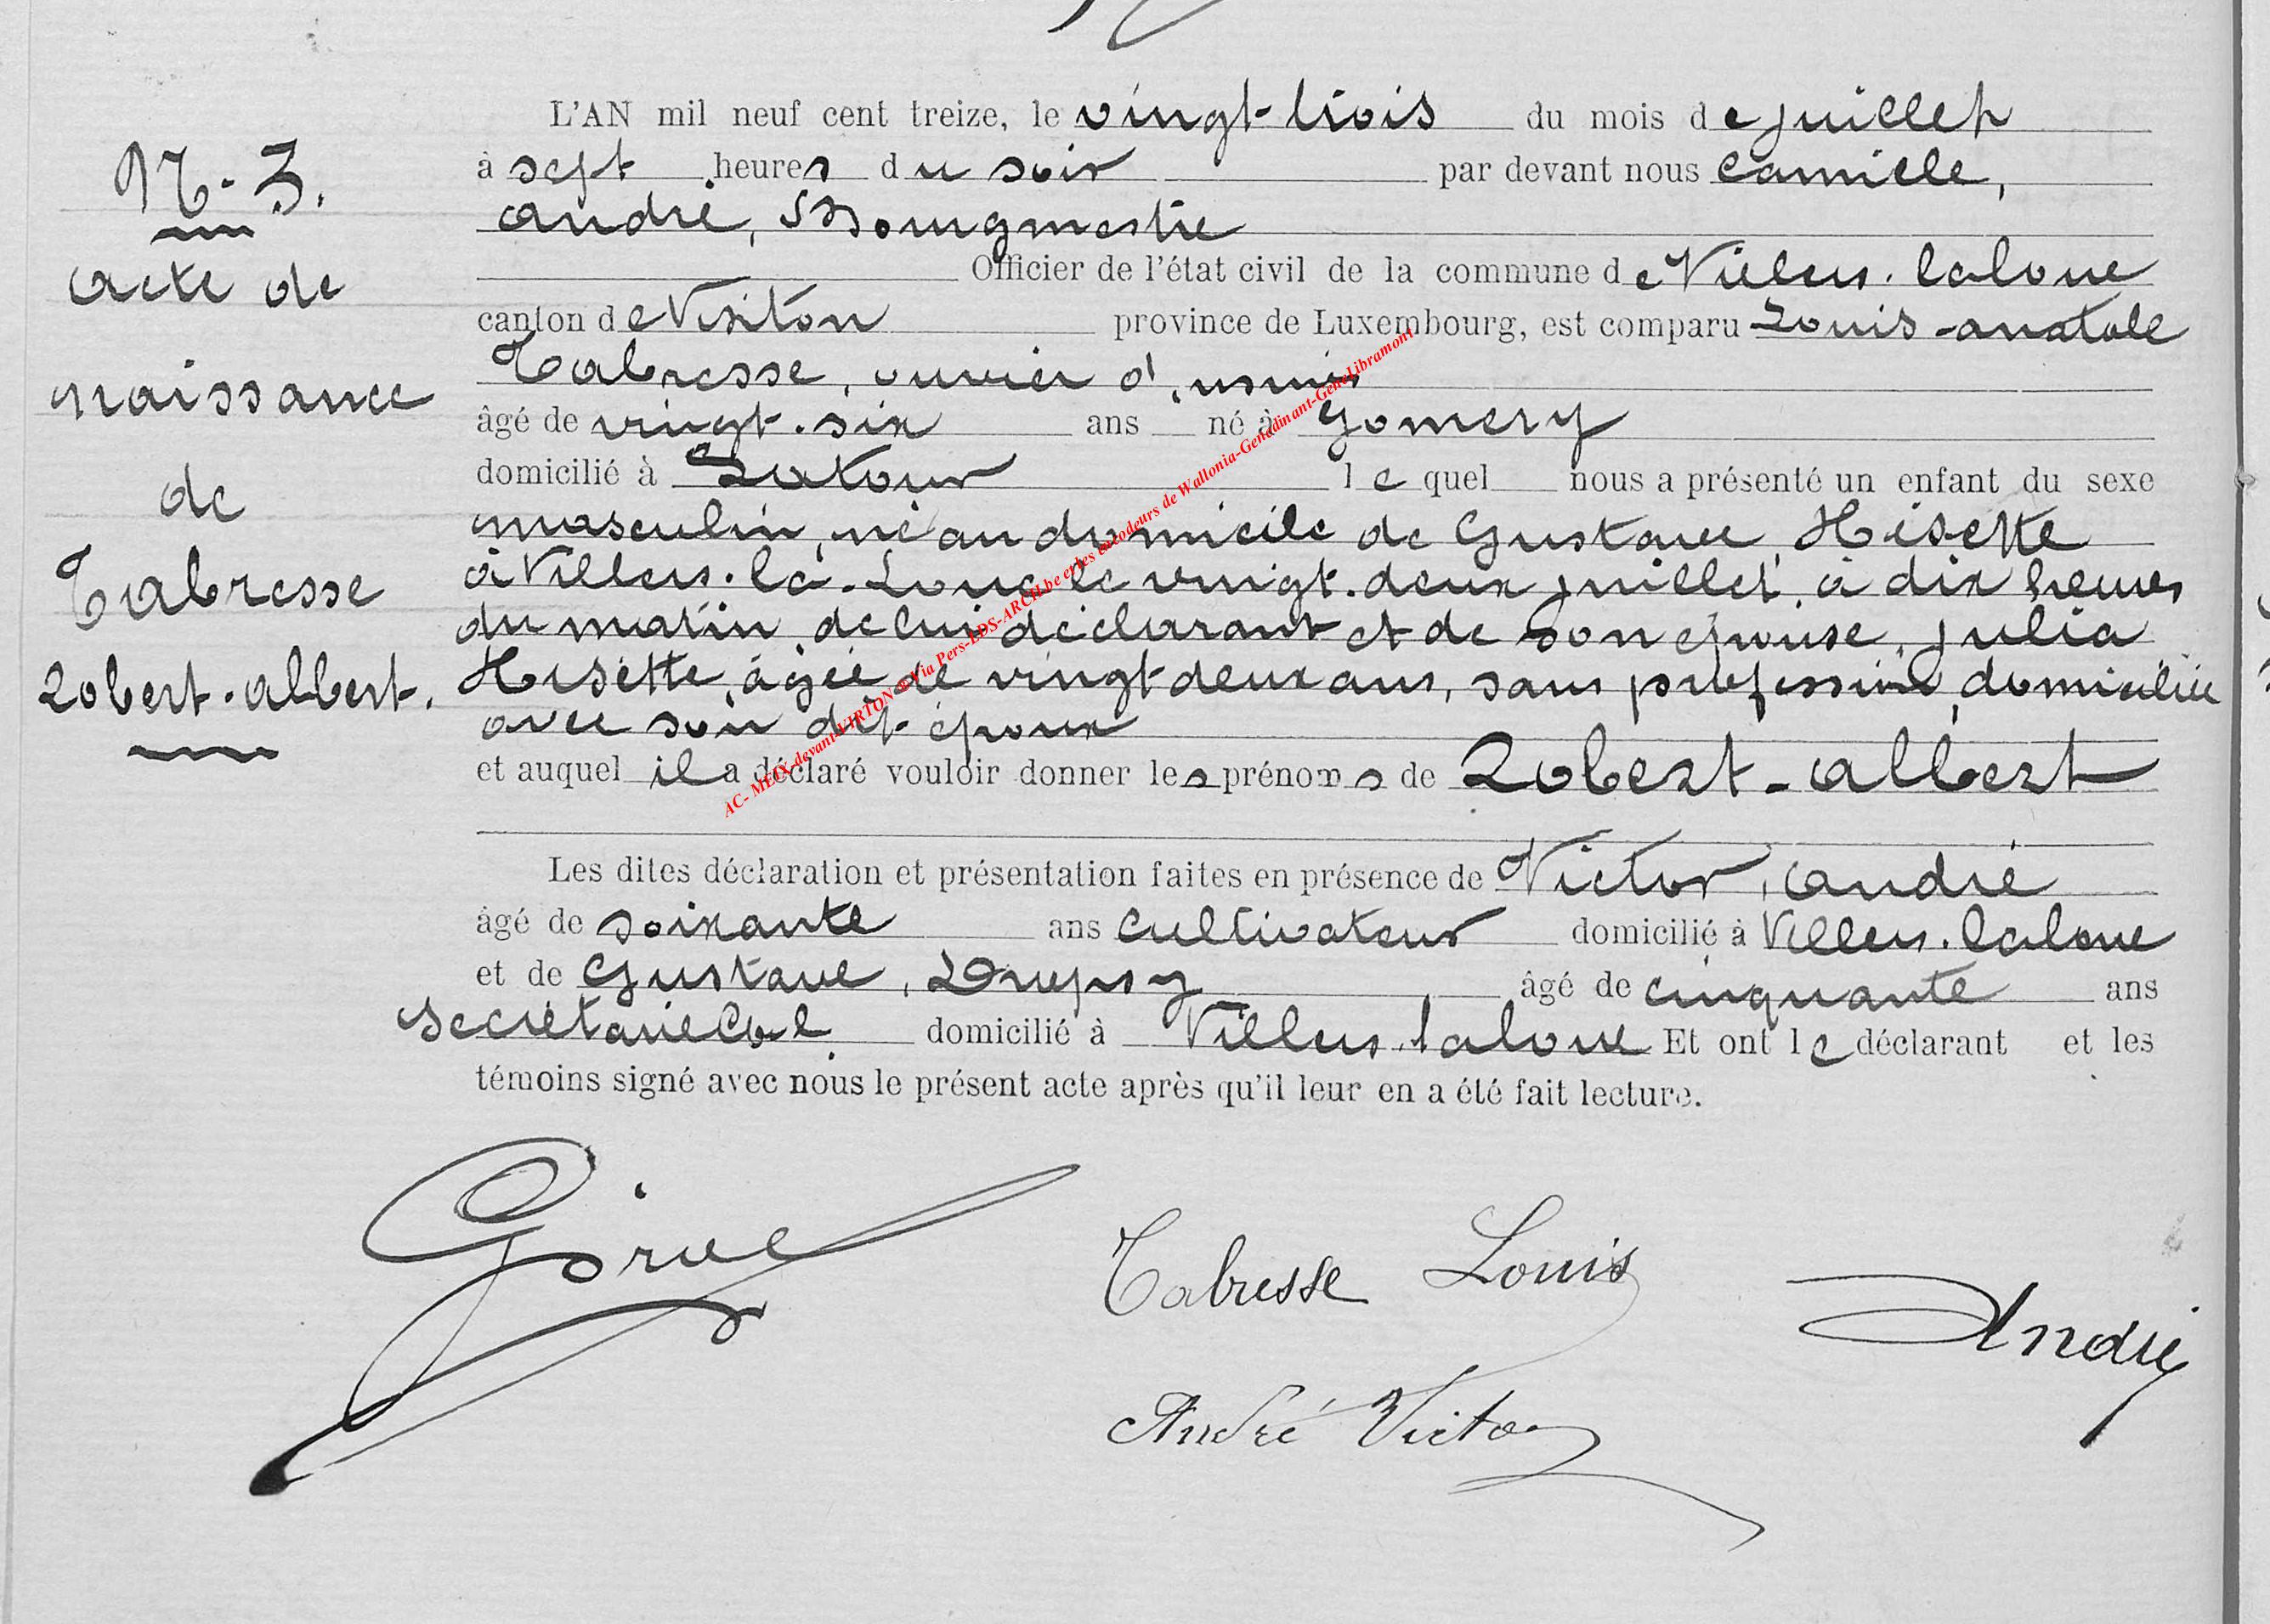 N-3.
acte de
naissance
de
Tabresse
Robert-albert.
L'AN mil neuf cent treize, le vingt-trois du mois de juillet
à sept heures du soir par devant nous Camille,
andré, Bourgmestre
Officier de l'état civil de la commune de Villers-laloue
canton de Virton province de Luxembourg, est comparu Louis-anatole
Tabresse, ouvrier d'usines
âgé de vingt-six ans né à Gomery
domicilié à Latour lequel nous a présenté un enfant du sexe
masculin, né au domicile de Gustave, Hisette
à Villers-la-Loue le vingt-deux juillet, à dix heures
du matin, de lui déclarant et de son épouse, julia
Hisette, âgée de vingt deux ans, sans profession, domiciliée
avec son dit époux
et auquel il a déclaré vouloir donner les prénoms de Robert-albert
Les dites déclaration et présentation faites en présence de Victor, andré
âgé de soixante ans cultivateur domicilié à Villers-laloue
et de Gustave, âgé de cinquante ans
secrétaire Cal domicilié à Villers-laloue Et ont le déclarant et les
témoins signé avec nous le présent acte après qu'il leur en a été fait lecture.
Tabresse Louis
André
André Victor
AC- MEIX-devant-VIRTON @ Via Pers-LDS-ARCH.be et les encodeurs de Wallonia-Genedinant-GeneLibramont